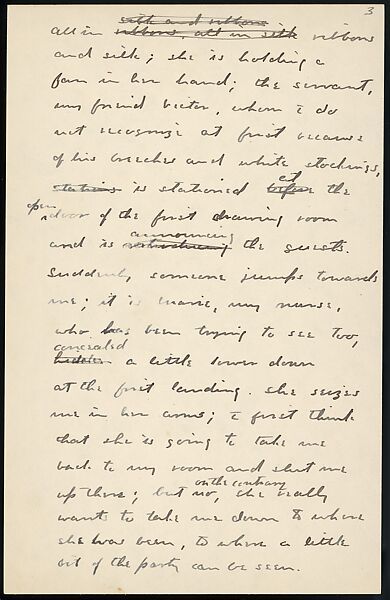 3
silk and ribbons
all in ribbons, all in silk ribbons
and silk; she is holding a
fan in her hand; the servant,
my friend Hector, whom I do
not recognize at first because
of his breeches and white stockings,
at
stations is stationed before the
open
door of the first drawing room
announcing
and is introducing the guests.
Suddenly someone jumps towards
me; it is Marie, my nurse,
who has been trying to see too,
concealed
hidden a little lower down
at the first landing. She seizes
me in her arms; I first think
that she is going to take me
back to my room and shut me
on the contrary
up there; but no, she really
wants to take me down to where
she has been, to where a little
bit of the party can be seen.